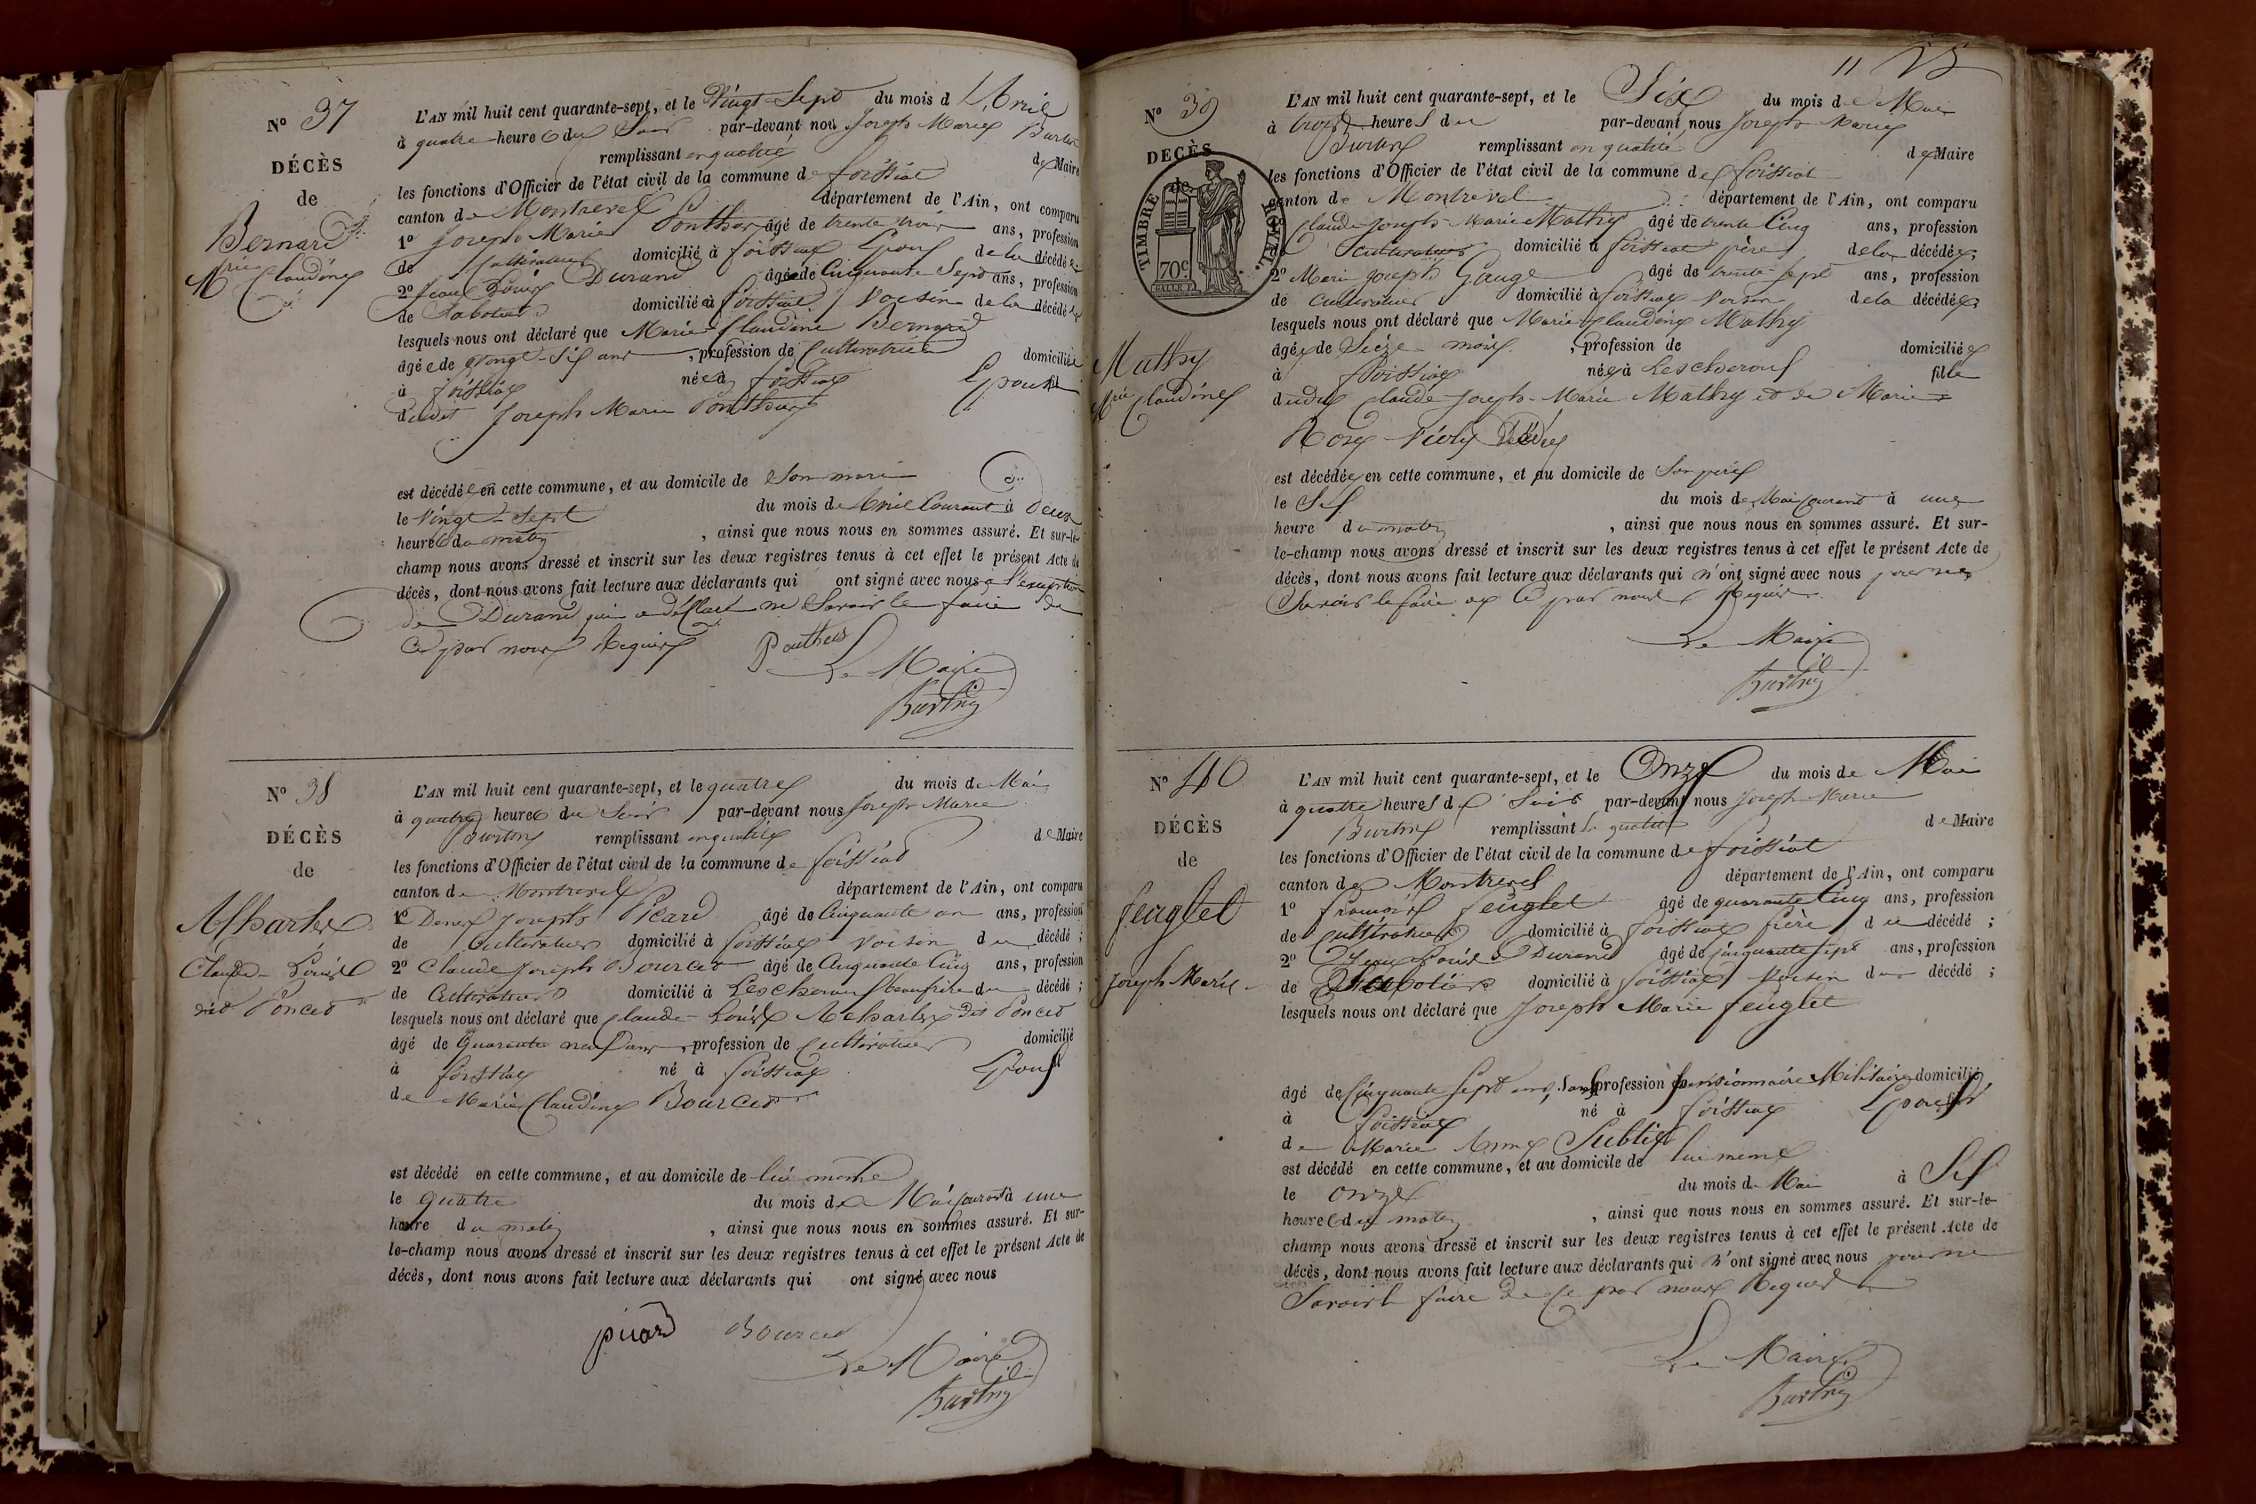 N° 37
DÉCÈS
de
Bernard
Mrie Claudine
L'AN mil huit cent quarante-sept, et le Vingt-Sept du mois d'Avril
à quatre heures du Soir par-devant nous Joseph Marie
remplissant en qualité de Maire
les fonctions d'Officier de l'état civil de la commune de foissiat
canton de Montrevel département de l'Ain, ont comparu
1° Joseph Marie Ponthus âgé de trente trois ans, profession
de Cultivateur domicilié à foissiat Epoux de la décédée
2° Jean Louis Durand âgé de Cinquante Sept ans, profession
de Sabotier domicilié à foissiat Voisin de la décédée
lesquels nous ont déclaré que Marie Claudine Bernard
âgée de Vingt-Six ans, profession de Cultivatrice domiciliée
à foissiat née à foissiat Epouse
dudit Joseph Marie Ponthus
est décédée en cette commune, et au domicile de Son mari
le Vingt-Sept du mois de Avril Courant à Deux
heures du matin, ainsi que nous nous en sommes assuré. Et sur-le-
champ nous avons dressé et inscrit sur les deux registres tenus à cet effet le présent Acte de
décès, dont nous avons fait lecture aux déclarants qui ont signé avec nous a l'exception
de Durand qui a déclaré ne Savoir le faire de
Ce par nous Requis
Ponthus
Le Maire
N° 38
DÉCÈS
de
Claude-Louis
dit Poncet
L'AN mil huit cent quarante-sept, et le quatre du mois de Mai
à quatre heures du Soir par-devant nous Joseph Marie
remplissant en qualité de Maire
les fonctions d'Officier de l'état civil de la commune de foissiat
canton de Montrevel département de l'Ain, ont comparu
1° Denis Joseph Picard âgé de Cinquante un ans, profession
de Cultivateur domicilié à foissiat voisin du décédé ;
2° Claude Joseph Bourcet âgé de Cinquante Cinq ans, profession
de Cultivateur domicilié à Lescheroux beaufrère du décédé ;
lesquels nous ont déclaré que Claude-Louis dit Poncet
âgé de Quarante neuf ans, profession de Cultivateur domicilié
à foissiat né à foissiat Epoux
de Marie Claudine Bourcet
est décédé en cette commune, et au domicile de lui même
le quatre du mois de Mai courant à une
heure du matin, ainsi que nous nous en sommes assuré. Et sur-
le-champ nous avons dressé et inscrit sur les deux registres tenus à cet effet le présent Acte de
décès, dont nous avons fait lecture aux déclarants qui ont signé avec nous
picard Bourcet
Le Maire
11
N° 39
DECÈS
de
TIMBRE ROYAL
70c.
Mathy
Mrie Claudine
L'AN mil huit cent quarante-sept, et le Six du mois de Mai
à trois heures du par-devant nous Joseph Marie
remplissant en qualité de Maire
les fonctions d'Officier de l'état civil de la commune de foissiat
canton de Montrevel département de l'Ain, ont comparu
Claude Joseph-Marie Mathy âgé de trente Cinq ans, profession
Cultivateur domicilié à foissiat père de la décédée ;
2° Marie Joseph Gauge âgé de trente-Sept ans, profession
de Cultivateur domicilié à foissiat Voisin de la décédée ;
lesquels nous ont déclaré que Marie Claudine Mathy
âgée de Seize mois, profession de domiciliée
à foissiat née à Lescheroux fille
dudit Claude-Joseph-Marie Mathy et de Marie
est décédée en cette commune, et au domicile de Son père
le Six du mois de Mai courant à une
heure du matin, ainsi que nous nous en sommes assuré. Et sur-
le-champ nous avons dressé et inscrit sur les deux registres tenus à cet effet le présent Acte de
décès, dont nous avons fait lecture aux déclarants qui n'ont signé avec nous pour ne
Savoir le faire de Ce par nous Requis
Le Maire
N° 40
DÉCÈS
de
feuglet
Joseph Marie
L'AN mil huit cent quarante-sept, et le Onze du mois de Mai
à quatre heures du Soir par-devant nous Joseph-Marie
remplissant en qualité de Maire
les fonctions d'Officier de l'état civil de la commune de foissiat
canton de Montrevel département de l'Ain, ont comparu
1° François feuglet âgé de quarante Cinq ans, profession
de Cultivateur domicilié à foissiat frère du décédé ;
2° Jean Louis Durand âgé de Cinquante Sept ans, profession
de Sabotier domicilié à foissiat Voisin du décédé ;
lesquels nous ont déclaré que Joseph Marie feuglet
âgé de Cinquante Sept ans, Sans profession pensionnaire Militaire domicilié
à foissiat né à foissiat Epoux
de Marie Anne Sublet
est décédé en cette commune, et au domicile de lui même
le onze du mois de Mai à Six
heures du matin, ainsi que nous nous en sommes assuré. Et sur-le-
champ nous avons dressé et inscrit sur les deux registres tenus à cet effet le présent Acte de
décès, dont nous avons fait lecture aux déclarants qui n'ont signé avec nous pour ne
Savoir le faire de Ce par nous Requis
Le Maire